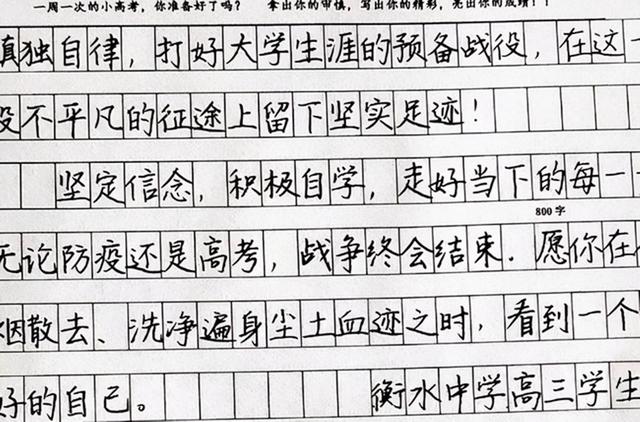 一周一次的小高考，你准备好了吗？ 拿出你的审慎，写出你的精彩，亮出你的成绩！！
慎独自律，打好大学生涯的预备战役，在这一
段不平凡的征途上留下坚实足迹！
坚定信念，积极自学，走好当下的每一
800字
无论防疫还是高考，战争终会结束．愿你在
烟散去、洗净遍身尘土血迹之时，看到一个
好的自己。 衡水中学高三学生